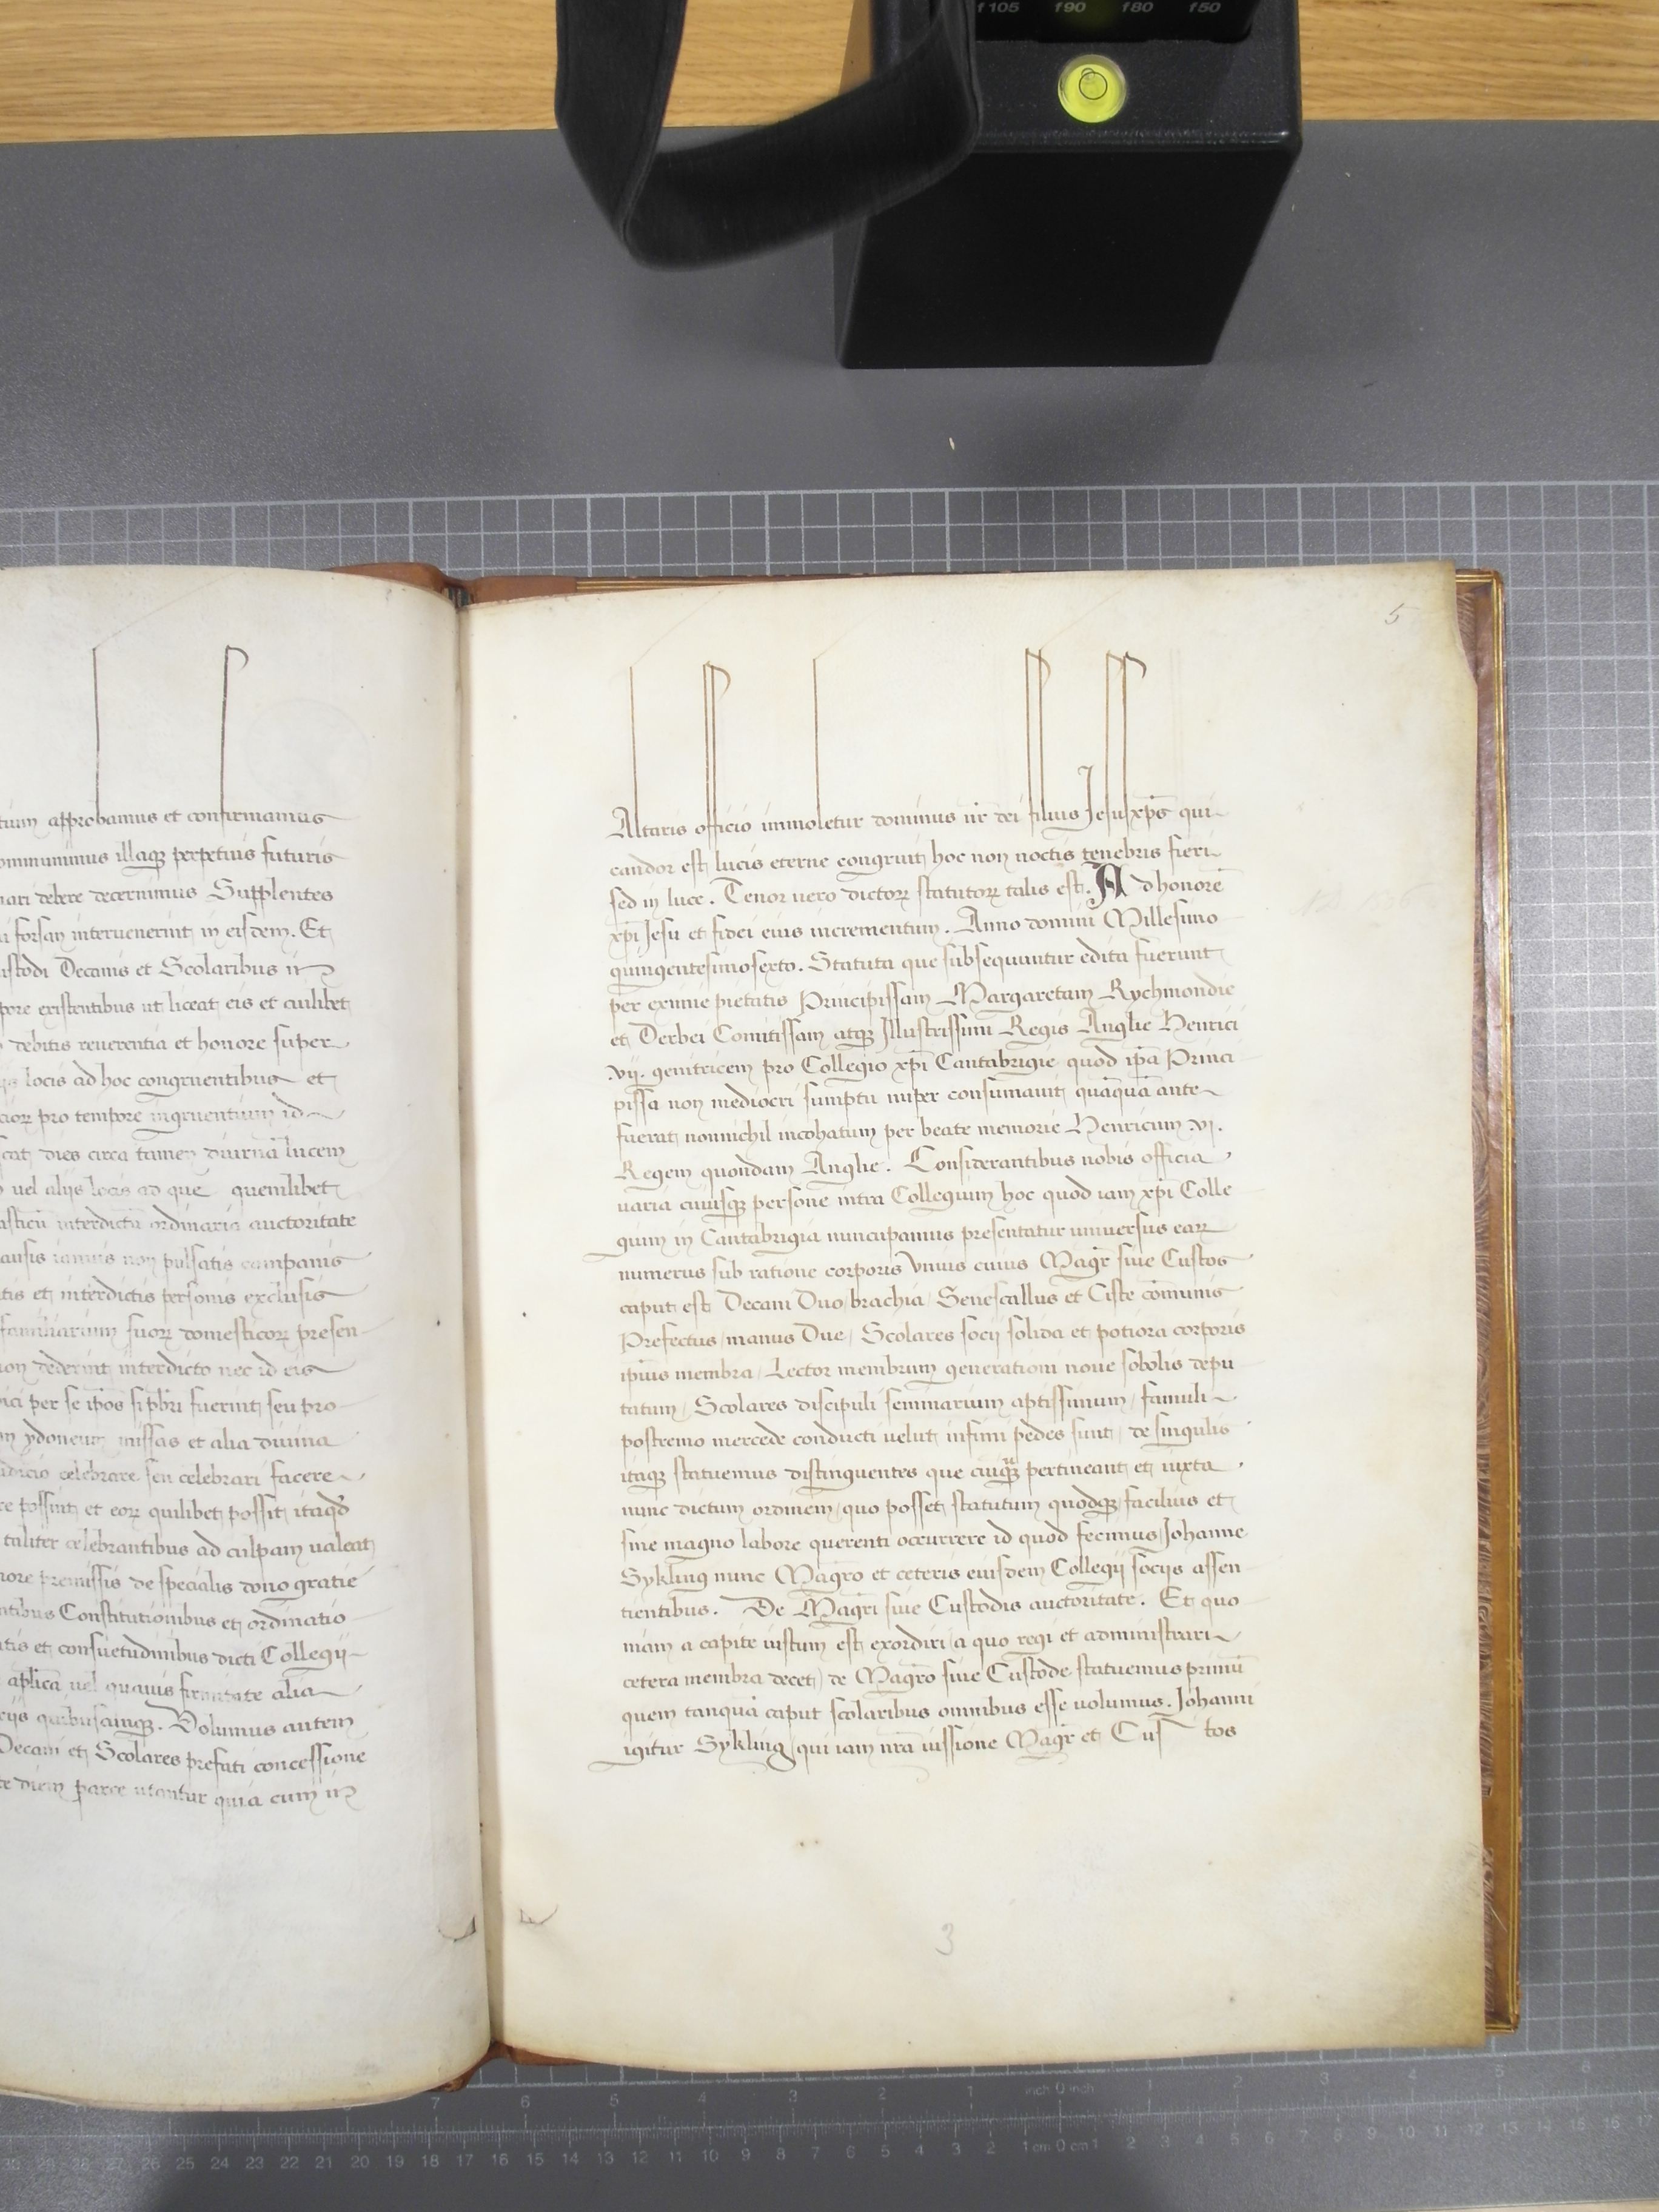 f105 f90 f80 f50
5
approbamus et confirmamus
illaqꝫ perpetuis futuris
debere decernimus Supplentes
forsan interuenerint in eisdem. Et
Decanis et Scolaribus
existentibus ut liceat eis et cuilibet
debitis reuerentia et honore super
locis ad hoc congruentibus et
pro tempore ingruentium id
dies circa tamen diurnā lucem
uel alijs locis ad que quemlibet
interdictū ordinaria auctoritate
ianuis non pulsatis campanis
et interdictis personis exclusis
familiarium suoꝝ domesticoꝝ presen
dederint interdicto nec id eis
per se ip̄os si pb̄ri fuerint seu pro
ydoneum missas et alia diuina
celebrare seu celebrari facere
possint et eoꝝ quilibet possit itaqd̄
taliter celebrantibus ad culpam ualeat
premissis de specialis dono gratie
Constitutionibus et ordinatio
et consuetudinibus dicti Collegij
ap̄lica uel quauis firmitate alia
quibuscunqꝫ. Volumus autem
Decani et Scolares prefati concessione
diem parce utantur quia cum in
Altaris officio immoletur dominus nr̄ dei filius Jesus xp̄s qui
candor est lucis eterne congruit hoc non noctis tenebris fieri
sed in luce. Tenor uero dictoꝝ statutoꝝ talis est. Ad honorē
xp̄i Jesu et fidei eius incrementum. Anno domini Millesimo
quingentesimosexto. Statuta que subsequantur edita fuerunt
per eximie pietatis Principissam Margaretam Rychmondie
et Derbei Comitissam atqꝫ Illustrissimi Regis Anglie Henrici
.vij. genitricem pro Collegio xp̄i Cantabrigie quod ip̄a Princi
pissa non mediocri sumptu nuper consumauit quāquā ante
fuerat nonnichil incohatum per beate memorie Henricum .vj.
Regem quondam Anglie. Considerantibus nobis officia
uaria cuiusqꝫ persone intra Collegium hoc quod iam xp̄i Colle
gium in Cantabrigia nuncupamus presentatur uniuersus eaꝝ
numerus sub ratione corporis Vnius cuius Magr̄ siue Custos
caput est Decani Duo brachia / Senescallus et Ciste com̄unis
Prefectus / manus Due / Scolares socij solida et potiora corporis
ip̄ius membra / Lector membrum generationi noue sobolis depu
tatum / Scolares discipuli seminarium aptissimum / famuli
postremo mercede conducti uelut infimi pedes sunt / de singulis
itaqꝫ statuemus distinguentes que cuiqꝫ pertineant et iuxta
nunc dictum ordinem / quo posset statutum quodqꝫ facilius et
sine magno labore querenti occurrere id quod fecimus / Johanne
Sykling nunc Magr̄o et ceteris eiusdem Collegij socijs assen
tientibus. De Magr̄i siue Custodis auctoritate. Et quo
niam a capite iustum est exordiri / a quo regi et administrari
cetera membra decet / de Magr̄o siue Custode statuemus primū
quem tanquā caput scolaribus omnibus esse uolumus. Johanni
igitur Sykling / qui iam nr̄a iussione Magr̄ et Cus tos
3
7 6 5 4 3 2 1 inch 0 inch 1 2 3 4 5 6
30 29 28 27 26 25 24 23 22 21 20 19 18 17 16 15 14 13 12 11 10 9 8 7 6 5 4 3 2 1 cm 0 cm 1 2 3 4 5 6 7 8 9 10 11 12 13 14 15 16 17